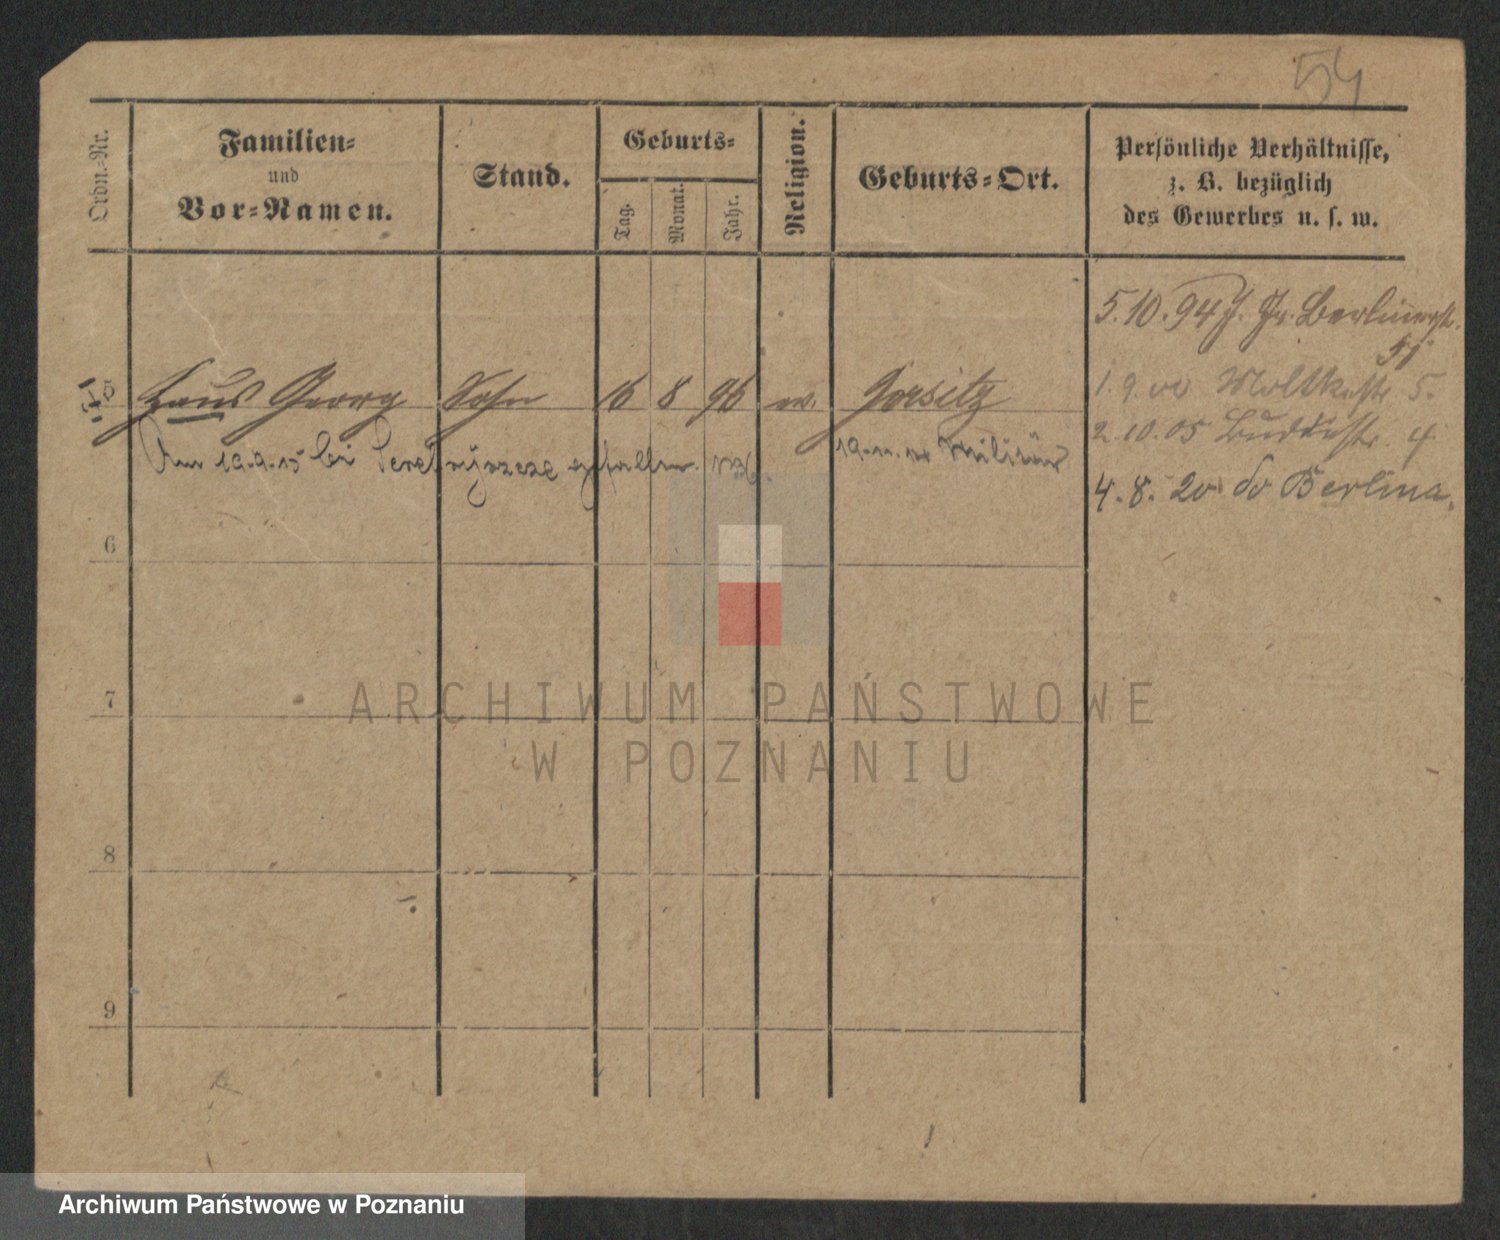 54
Ordn.-Nr.
Familien-
und
Vor-Namen.
Stand.
Geburts-
Tag.
Monat.
Jahr.
Religion.
Geburts-Ort.
Persönliche Verhältnisse,
z. B. bezüglich
des Gewerbes u. s. w.
5.10.94 Berlinerstr.
51
1.9.00 Moltkestr. 5.
5 Hans Georg Sohn 16 8 96 ev. Jorsitz
2.10.05 4
Am 19.9.15 bei gefallen. Militär
4.8.20 do Berlina
6
7
8
9
ARCHIWUM PAŃSTWOWE
W POZNANIU
Archiwum Państwowe w Poznaniu